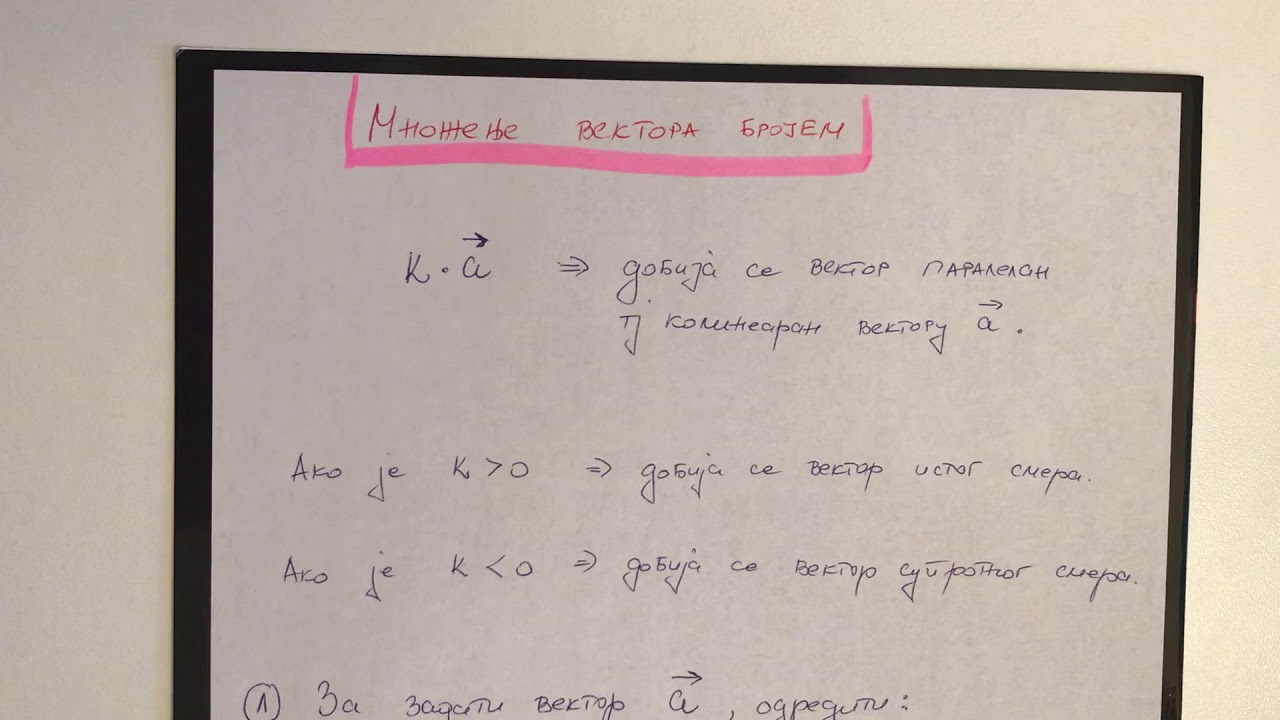 Множење вектора бројем
K · a⃗ ⇒ добија се вектор паралелан
тј колинеаран вектору a⃗ .
Ако је K > 0 ⇒ добија се вектор истог смера.
Ако је K < 0 ⇒ добија се вектор супротног смера.
① За задати вектор a⃗ , одредити: